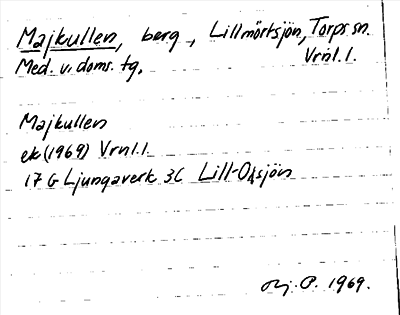 Majkullen, berg, Lillmörtsjön, Torps sn.
Med. v. doms. tg. Vrnl.l.
Majkullen
ek (1969) Vrnl.l
17 G Ljungaverk 3C Lill-Oxsjön
P. 1969.